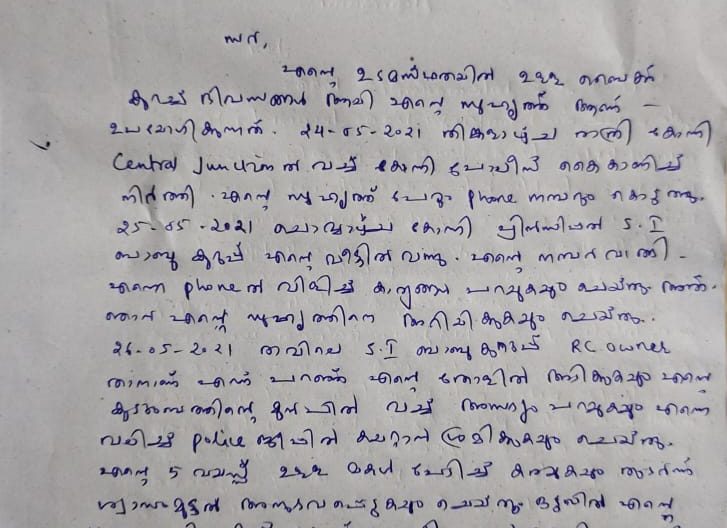 സർ,
എന്റെ ഉടമസ്ഥതയിൽ ഉള്ള ബൈക്ക്
കുറച്ച് ദിവസങ്ങൾ ആയി എന്റെ സുഹൃത്ത് ആണ്
ഉപയോഗിക്കുന്നത്. 24-05-2021 തിങ്കളാഴ്ച രാത്രി കോന്നി
Central Junction ൽ വച്ച് കോന്നി പോലീസ് കൈകാണിച്ച്
നിർത്തി. എന്റെ സുഹൃത്ത് പേരും phone നമ്പറും കൊടുത്തു.
25-05-2021 ചൊവ്വാഴ്ച കോന്നി പ്രിൻസിപ്പൽ S.I
ബാബു കുറുപ്പ് എന്റെ വീട്ടിൽ വന്നു. എന്റെ നമ്പർ വാങ്ങി.
എന്നെ phone ൽ വിളിച്ച് കാര്യങ്ങൾ പറയുകയും ചെയ്തു.
ഞാൻ എന്റെ സുഹൃത്തിനെ അറിയിക്കുകയും ചെയ്തു.
26-05-2021 രാവിലെ S.I ബാബു കുറുപ്പ് RC owner
താനാണ് എന്ന് പറഞ്ഞ് എന്റെ തോളിൽ അടിക്കുകയും എന്റെ
കുടുംബത്തിന്റെ മുൻപിൽ വച്ച് അസഭ്യം പറയുകയും എന്നെ
വലിച്ച് police ജീപ്പിൽ കയറ്റാൻ ശ്രമിക്കുകയും ചെയ്തു.
എന്റെ 5 വയസ്സ് ഉള്ള മകൾ പേടിച്ച് കരയുകയും തുടർന്ന്
ശ്വാസംമുട്ടൽ അനുഭവപ്പെടുകയും ചെയ്തു. എന്റെ